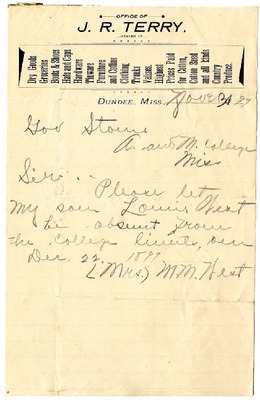 OFFICE OF
J. R. TERRY,
DEALER IN
Dry Goods
Groceries
Boots & Shoes
Hats and Caps
Hardware
Tinware
Furniture
and Coffins
Clothing
Trunks
Valises.
Highest
Prices Paid
for Cotton,
Cotton Seed
and all kinds
Country
Produce.
DUNDEE, MISS.,
Gov Stone
A. and M. College
Miss
Sir:
Please let
my son Louis West
be absent from
the College limits, on
Dec. 22, 1897
(Mrs.) M. M. West